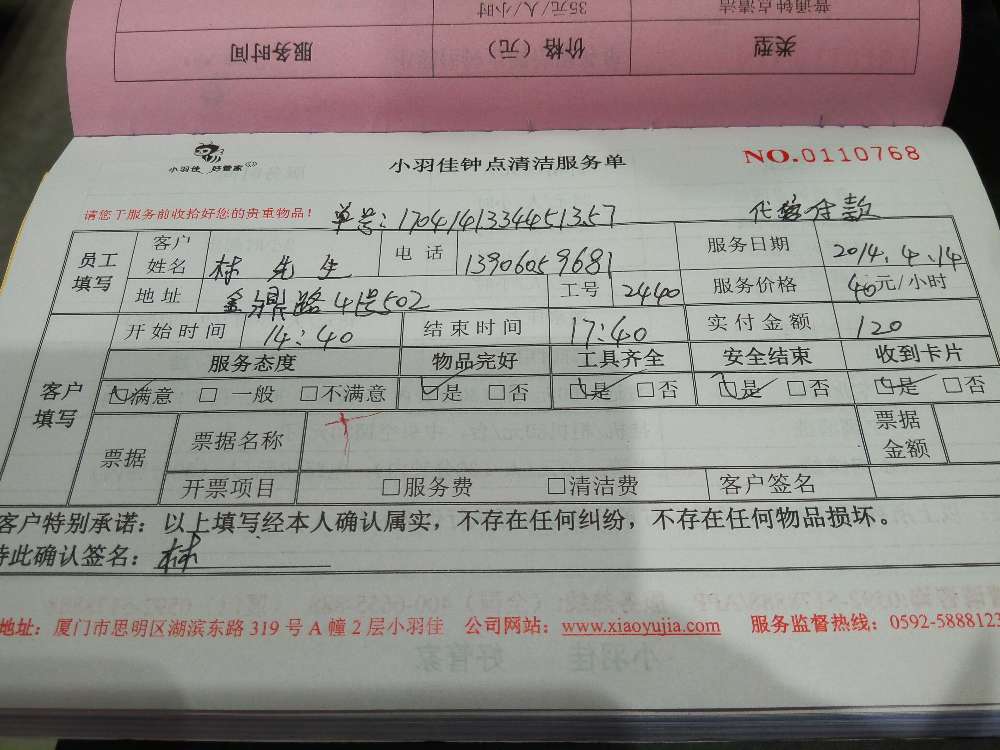 普通钟点清洁 35元/人/小时
类型 价格（元） 服务时间
小羽佳 好管家
小羽佳钟点清洁服务单
NO.0110768
请您于服务前收拾好您的贵重物品！
单号：1704141334451357
付款
员工填写 客户姓名 林先生 电话 13906059681 服务日期 2014.4.14
地址 金鼎路41号502 工号 2440 服务价格 40元/小时
客户填写 开始时间 14:40 结束时间 17:40 实付金额 120
服务态度 物品完好 工具齐全 安全结束 收到卡片
☑满意 □ 一般 □不满意 ☑是 □否 ☑是 □否 ☑是 □否 ☑是 □否
票据 票据名称 票据金额
开票项目 □服务费 □清洁费 客户签名
客户特别承诺：以上填写经本人确认属实，不存在任何纠纷，不存在任何物品损坏。
特此确认签名：林
地址：厦门市思明区湖滨东路 319 号 A 幢 2 层小羽佳 公司网站：www.xiaoyujia.com 服务监督热线：0592-5888123